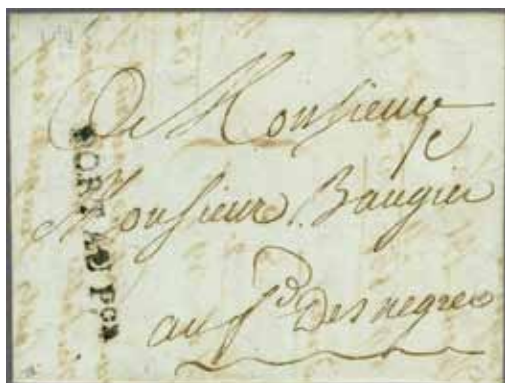 A Monsieur
Monsieur Baugier
au fd Des negres
PORT AU PCE